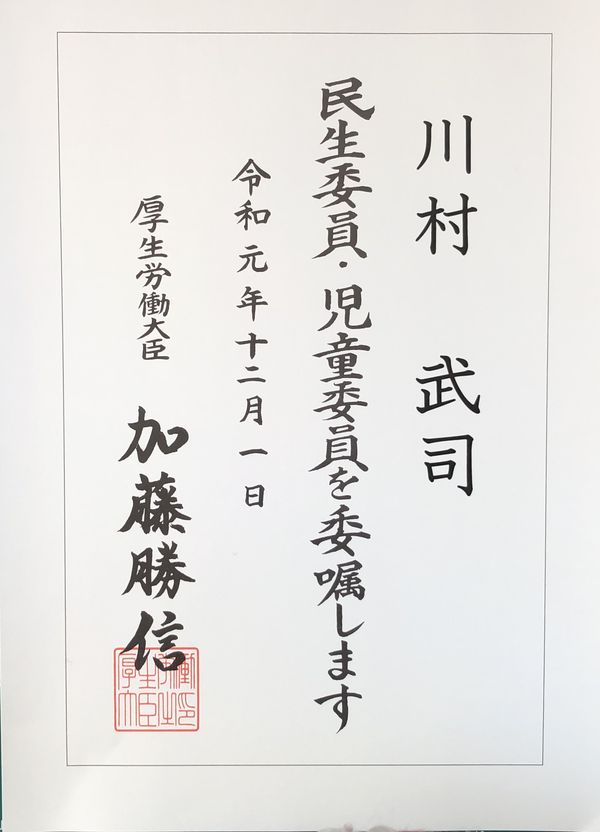 川村 武司
民生委員・児童委員を委嘱します
令和元年十二月一日
厚生労働大臣 加藤勝信
厚生労働大臣印